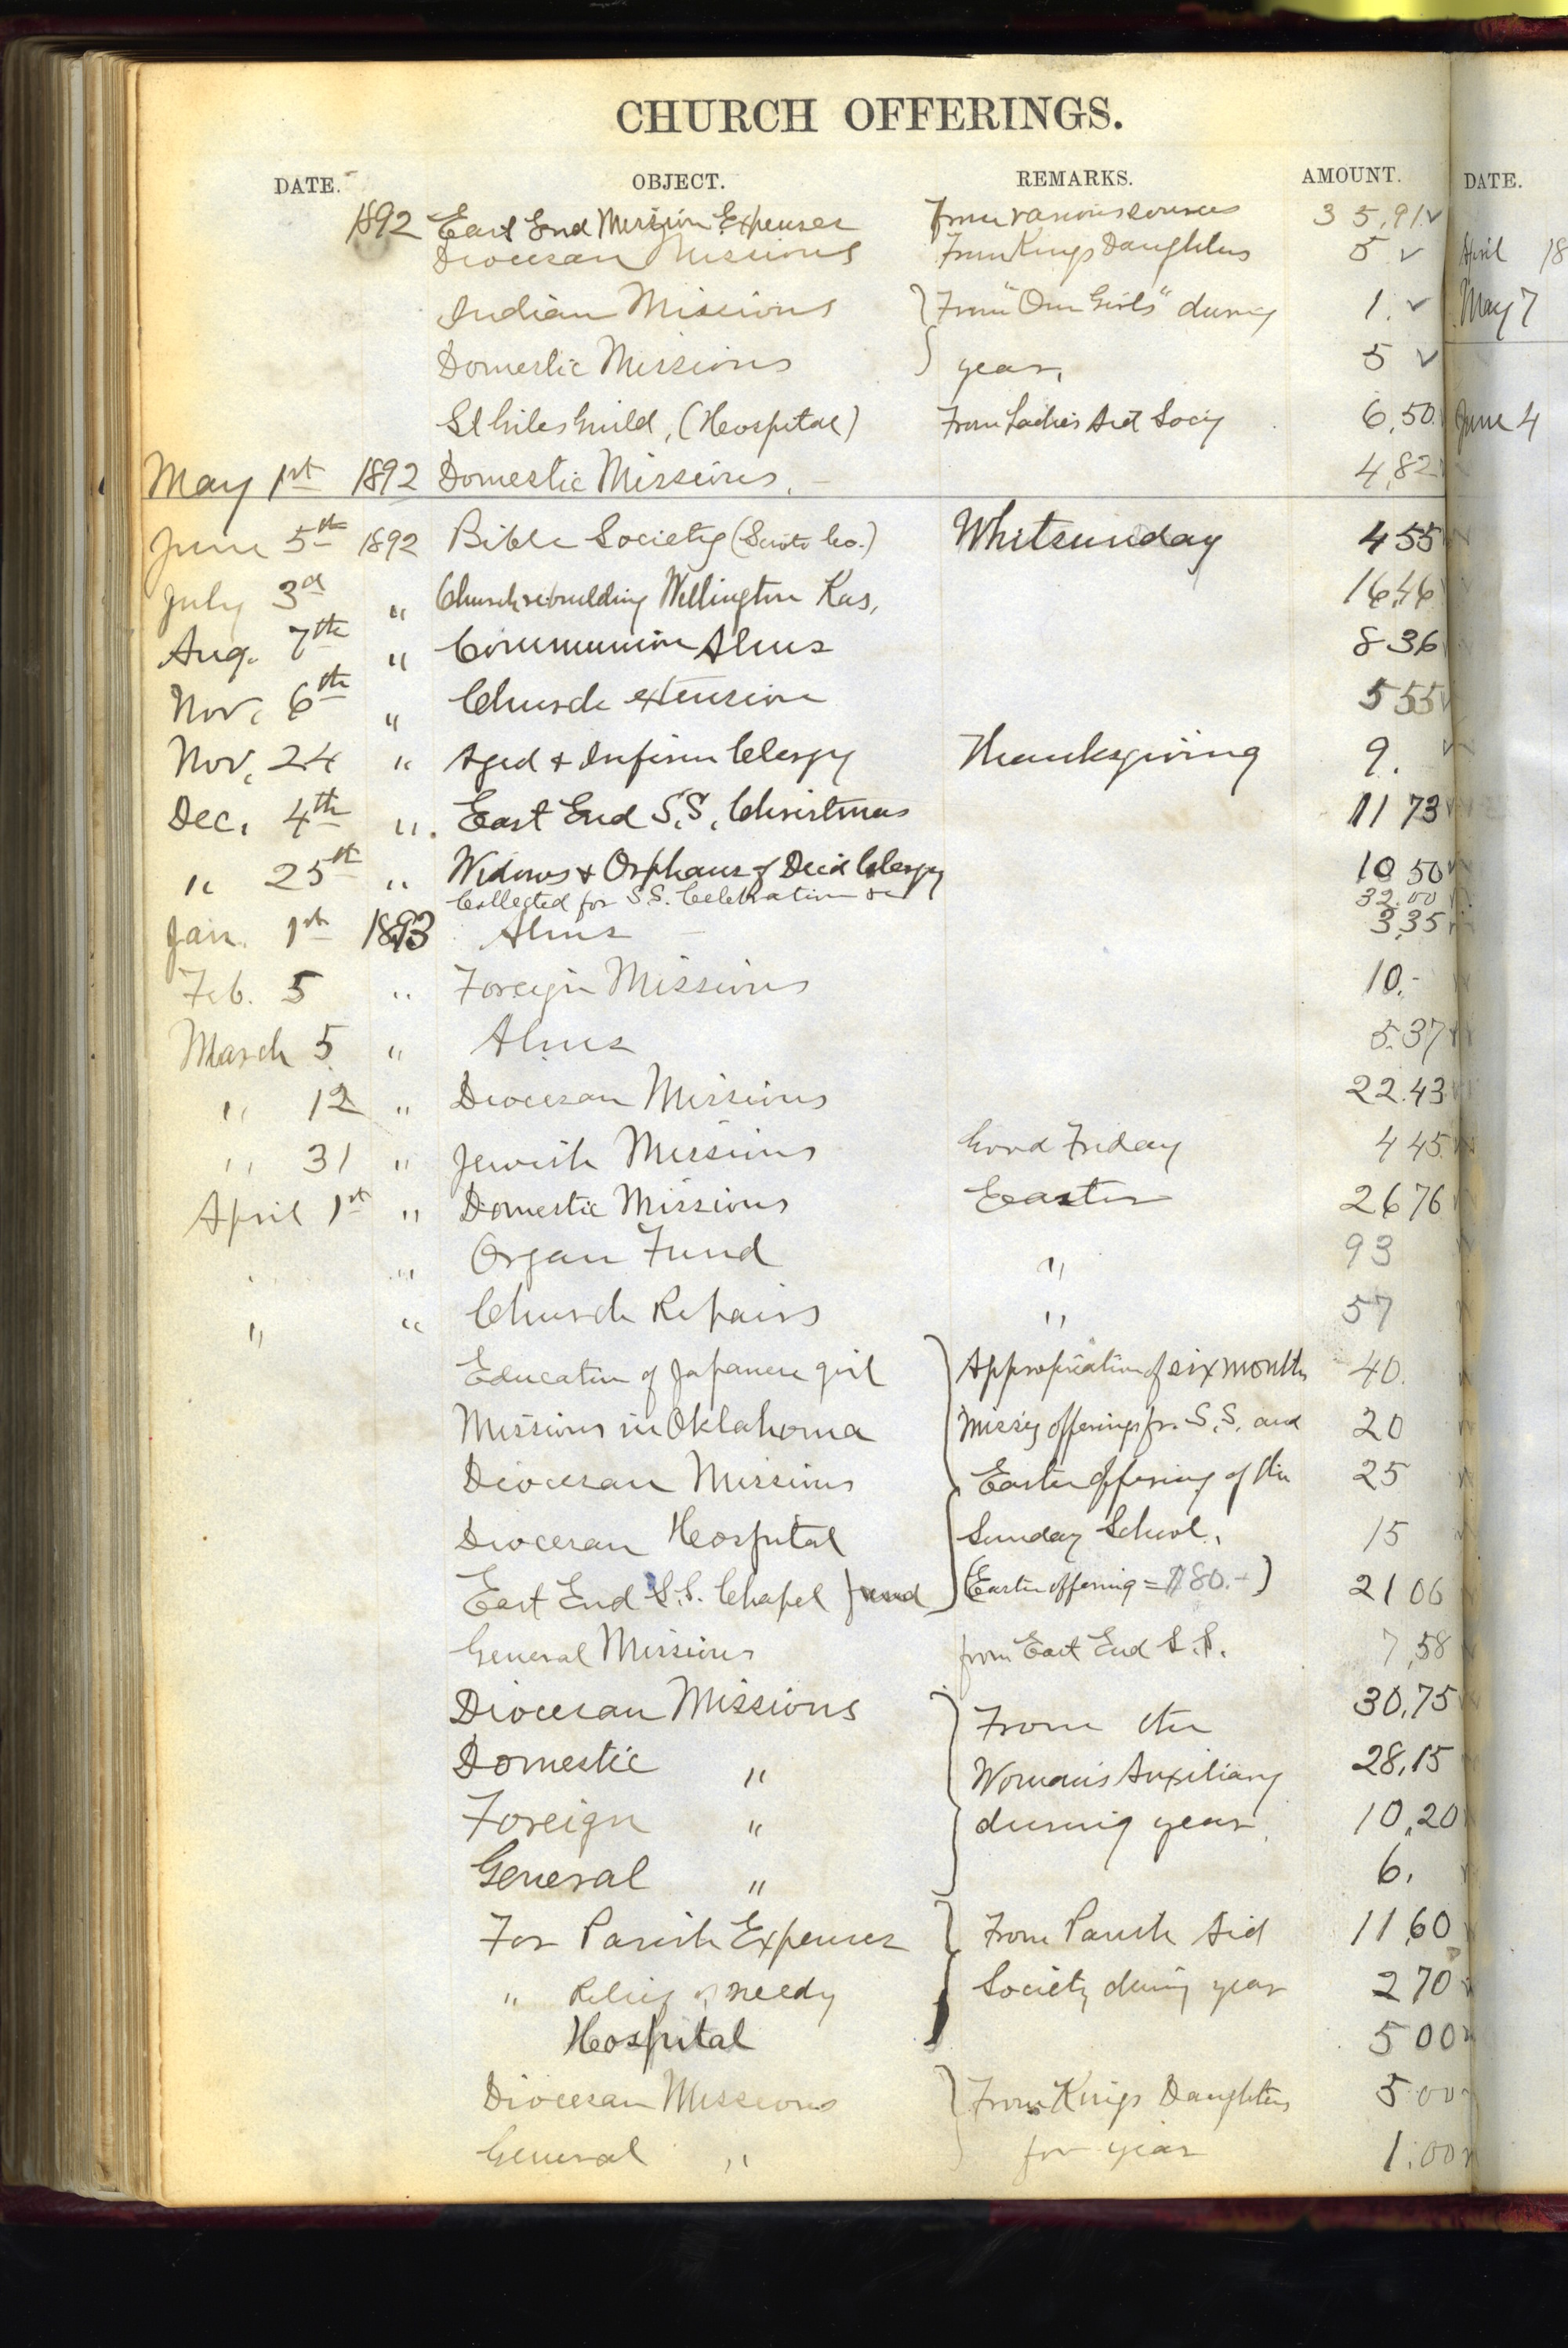 CHURCH OFFERINGS.
DATE. OBJECT. REMARKS. AMOUNT. DATE.
1892 East End Mission Expenses From various sources 35,91 ✓
Diocesan Missions From Kings Daughters 5 ✓ April 18
Indian Missions } From "Our Girls" during 1. ✓ May 7
Domestic Missions } year, 5 ✓
St Giles Guild, (Hospital) From Ladies Aid Socy 6,50 June 4
May 1st 1892 Domestic Missions. 4,82
June 5th 1892 Bible Society (Scioto Co.) Whitsunday 4 55
July 3d " Church rebuilding Wellington Kas, 16,46
Aug. 7th " Communion Alms 8 36
Nov, 6th " Church extension 5 55
Nov, 24 " Aged & Infirm Clergy Thanksgiving 9. ✓
Dec, 4th " East End S.S. Christmas 11 73
" 25th " Widows & Orphans of Decd Clergy 10 50
Collected for S.S. Celebration &c 32.00
Jan. 1st 1893 Alms 3,35
Feb. 5 " Foreign Missions 10.-
March 5 " Alms 5.37
" 12 " Diocesan Missions 22.43
" 31 " Jewish Missions Good Friday 4 45
April 1st " Domestic Missions Easter 26 76
" Organ Fund " 93
" " Church Repairs " 57
Education of Japanese girl } Appropriation of six months 40.
Missions in Oklahoma Missy offerings fr. S.S. and 20
Diocesan Missions Easter Offering of the 25
Diocesan Hospital Sunday School. 15
East End S.S. Chapel fund } (Easter offering = $80.-) 21 06
General Missions from East End S.S. 7,58
Diocesan Missions } From the 30,75
Domestic " Woman's Auxiliary 28,15
Foreign " during year 10,20
General " 6.
For Parish Expenses } From Parish Aid 11,60
" Relief of needy Society during year 2 70
Hospital 5 00
Diocesan Missions } From Kings Daughters 5 00
General " for year 1.00